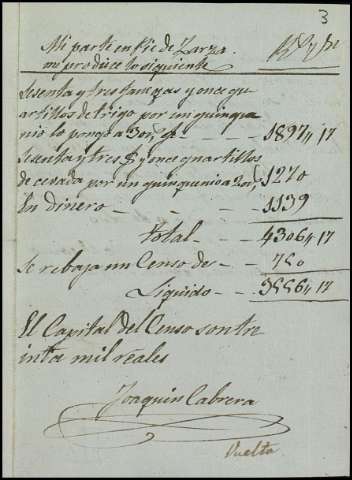 3
Mi parte en Pie de Zarza
me produce lo siguiente
Sesenta y tres fanegas y once qu
artillos de trigo por un quinque
nio lo pongo a 30 r.s f.a - - 1897,,17
Sesenta y tres f.s y once quartillos
de cevada por un quinquenio a 20 r.s 1270
En dinero - - - 1139
Total - - 4306,,17
Se rebaja un Censo de - - 750
Liquido - - 3556,,17
El Capital del Censo son tre
inta mil reales
Joaquin Cabrera
Vuelta